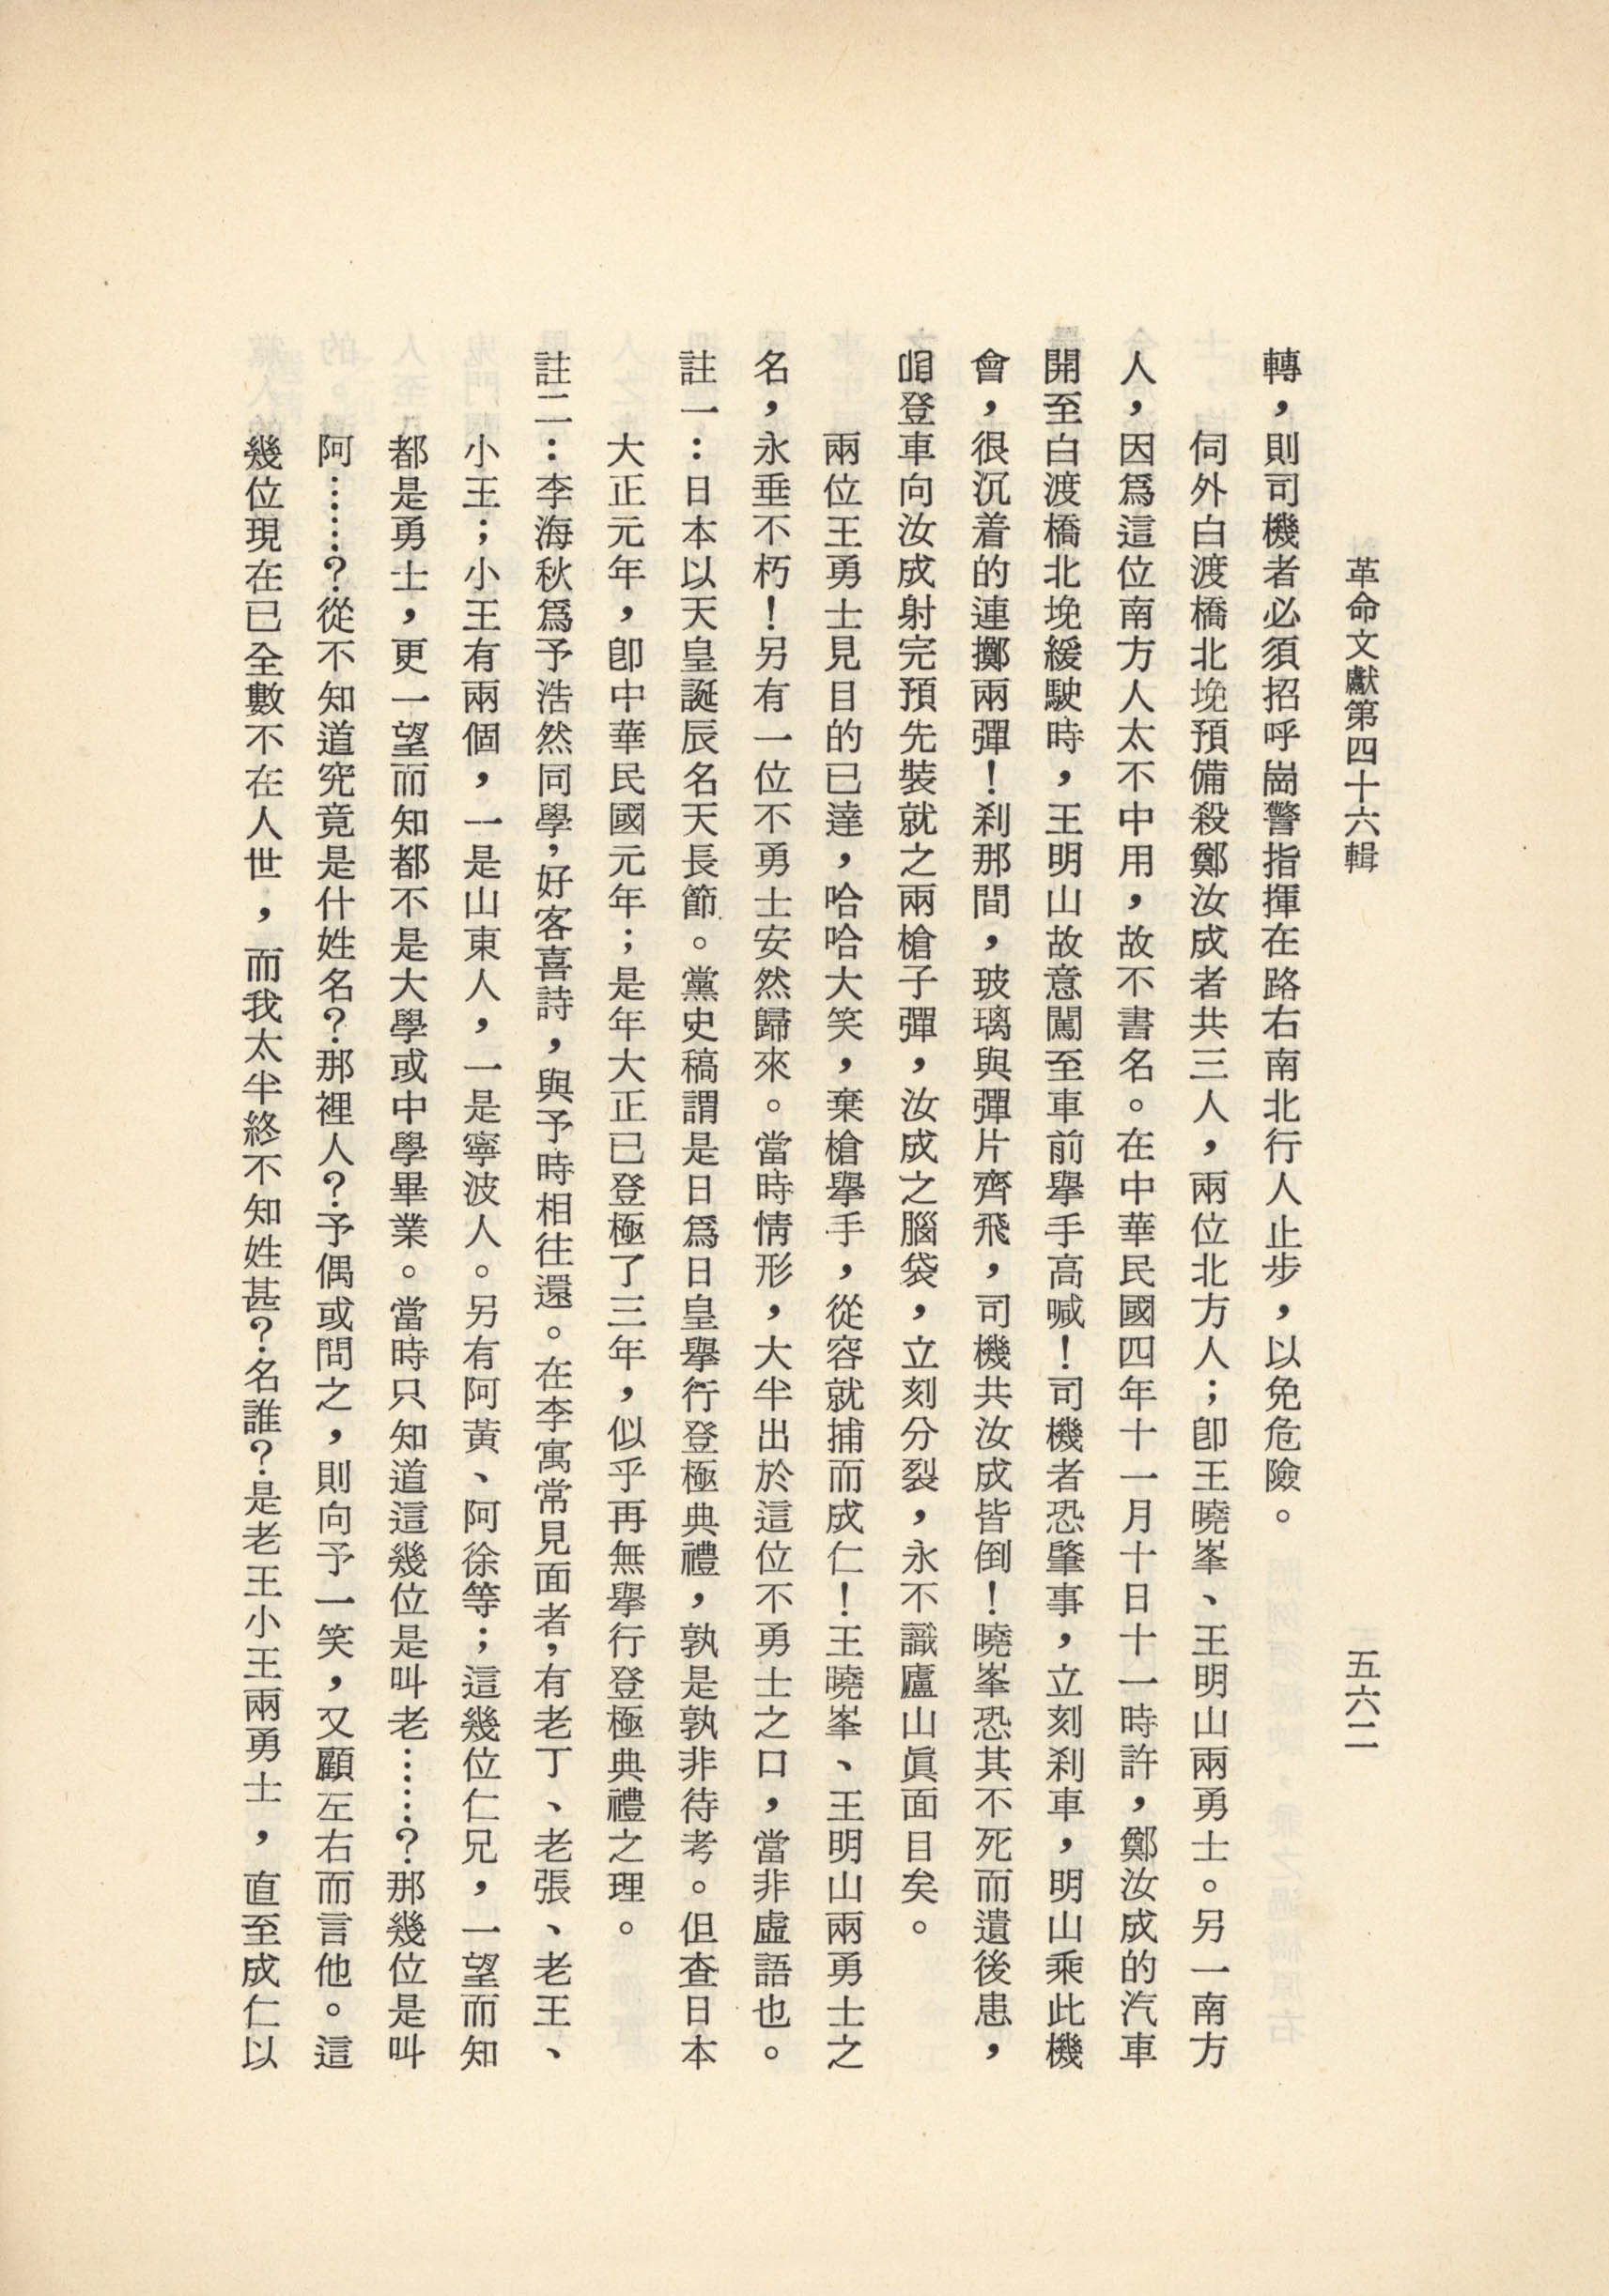 革命文獻第四十六輯
五六二
轉，則司機者必須招呼崗警指揮在路右南北行人止步，以免危險。
伺外白渡橋北堍預備殺鄭汝成者共三人，兩位北方人；卽王曉峯、王明山兩勇士。另一南方
人，因爲這位南方人太不中用，故不書名。在中華民國四年十一月十日十一時許，鄭汝成的汽車
開至白渡橋北堍緩駛時，王明山故意闖至車前舉手高喊！司機者恐肇事，立刻刹車，明山乘此機
會，很沉着的連擲兩彈！刹那間，玻璃與彈片齊飛，司機共汝成皆倒！曉峯恐其不死而遺後患，
登車向汝成射完預先裝就之兩槍子彈，汝成之腦袋，立刻分裂，永不識廬山眞面目矣。
兩位王勇士見目的已達，哈哈大笑，棄槍擧手，從容就捕而成仁！王曉峯、王明山兩勇士之
名，永垂不朽！另有一位不勇士安然歸來。當時情形，大半出於這位不勇士之口，當非虛語也。
註一：日本以天皇誕辰名天長節。黨史稿謂是日爲日皇擧行登極典禮，孰是孰非待考。但查日本
大正元年，卽中華民國元年；是年大正已登極了三年，似乎再無擧行登極典禮之理。
註二：李海秋爲予浩然同學，好客喜詩，與予時相往還。在李寓常見面者，有老丁、老張、老王、
小王；小王有兩個，一是山東人，一是寧波人。另有阿黃、阿徐等；這幾位仁兄，一望而知
都是勇士，更一望而知都不是大學或中學畢業。當時只知道這幾位是叫老……？那幾位是叫
阿……？從不知道究竟是什姓名？那裡人？予偶或問之，則向予一笑，又顧左右而言他。這
幾位現在已全數不在人世，而我太半終不知姓甚？名誰？是老王小王兩勇士，直至成仁以